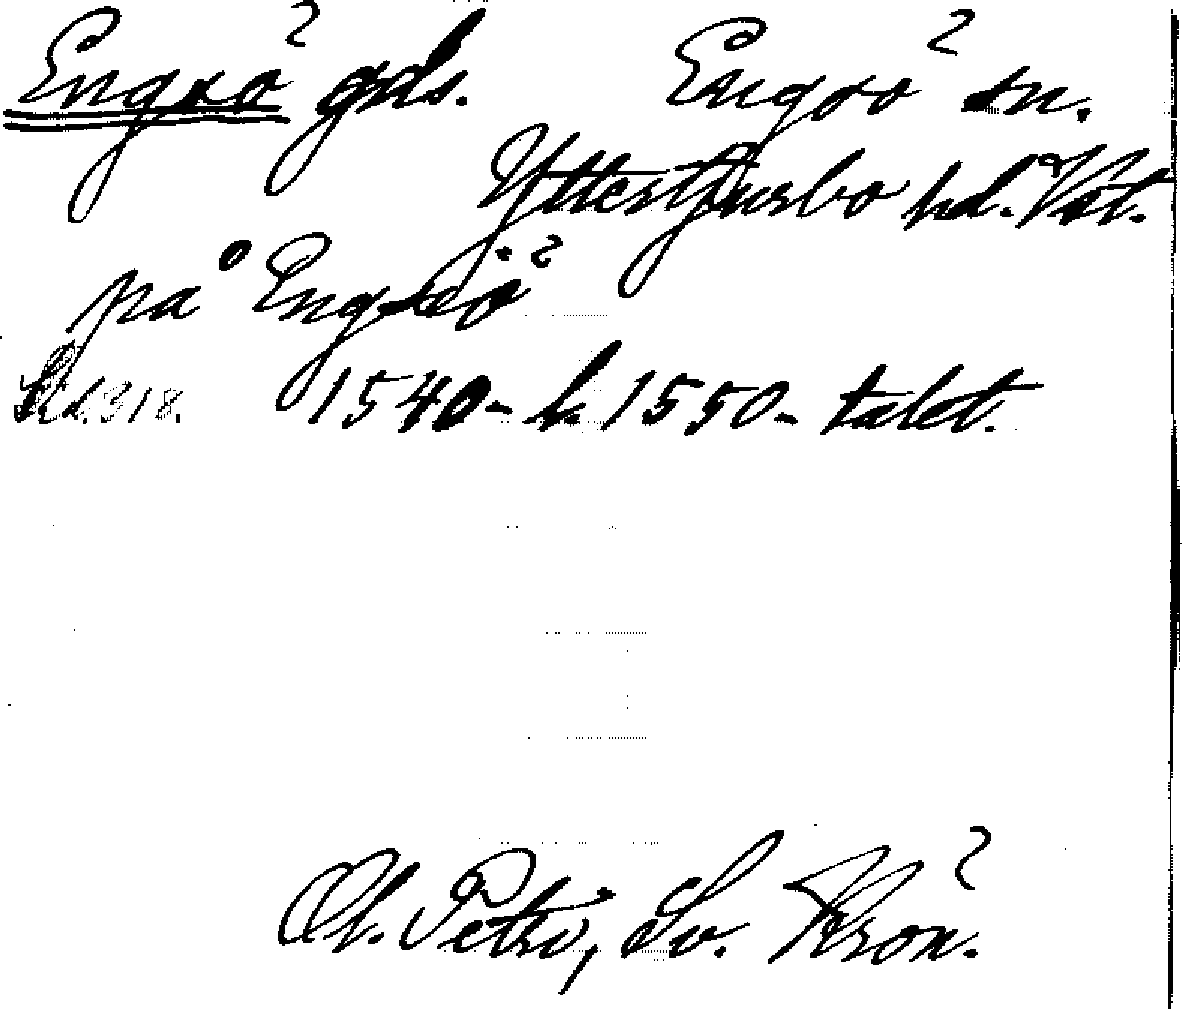 Engsö gds. Engsö sn.
Yttertjurbo hd. Vst.
på Engsiö
Sid. 318. 1540- h. 1550-talet.
Ol. Petri, Sv. Krön.